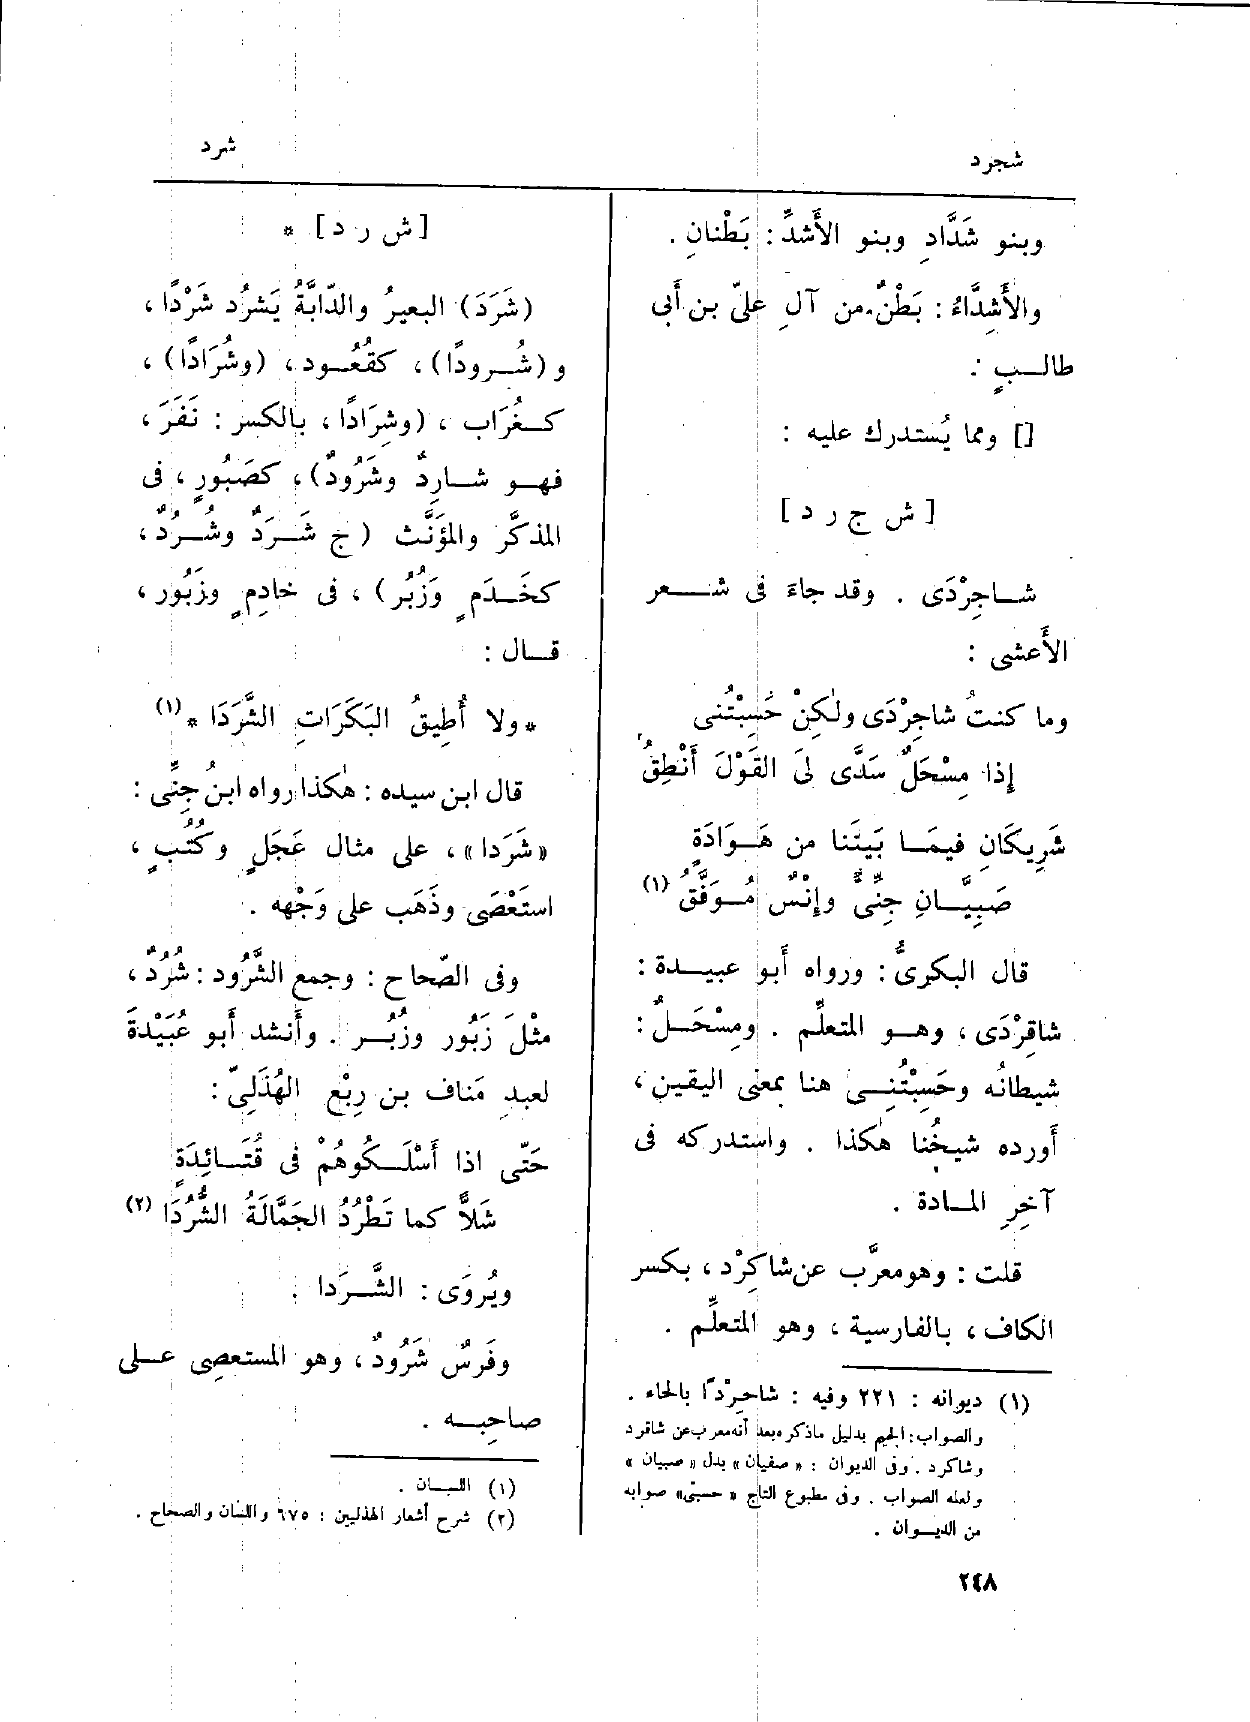 شجرد
شرد
وبنو شَدَّادٍ وبنو الأَشدِّ : بَطْنانِ .
والأَشِدَّاءُ : بَطْنٌ من آلِ علىّ بن أَبى
طالـبٍ :
[] ومما يُستدرك عليه :
[ ش ج ر د ]
شـاجِرْدَى . وقد جاءَ فى شـعر
الأَعشى :
وما كنتُ شاجِرْدَى ولٰكِنْ حَسِبْتُنى
إذا مِسْحَلٌ سَدَّى لِىَ القَوْلَ أَنْطِقُ
شَرِيكَانِ فيمَـا بَيتَنا من هَـوَادَةٍ
صَبِيَّـانِ جِنِّىٌّ وإِنْسٌ مُـوَفَّقُ (١)
قال البكرىُّ : ورواه أَبو عبيـدة :
شاقِرْدَى ، وهـو المتعلِّم . ومِسْحَـلٌ :
شيطانُه وحَسِبْتُنِـى هنا بمعنى اليقين ،
أَورده شيخُنا هٰكذا . واستدركه فى
آخِرِ المـادة .
قلت : وهو معرَّب عن شاكِرْد ، بكسر
الكاف ، بالفارسية ، وهو المتعلِّم .
(١) ديوانه : ٢٢١ وفيه : شاحِرْدًا بالحاء .
والصواب : الجيم بدليل ماذكره بعد أنه معرب عن شاقرد
وشاكرد . وفى الديوان : « صفيان » بدل « صبيان »
ولعله الصواب . وفى مطبوع التاج « حسبتى » صوابه
من الديـوان .
[ ش ر د ] *
(شَرَدَ) البعيرُ والدّابَّةُ يَشرُد شَرْدًا ،
و (شُـرودًا) ، كقُعُـود ، (وشُرَادًا) ،
كـغُرَاب ، (وشِرَادًا ، بالكسر : نَفَرَ ،
فهـو شـارِدٌ وشَرُودٌ) ، كصَبُورٍ ، فى
المذكَّر والمؤنَّث (ج شَـرَدٌ وشُـرُدٌ ،
كخَـدَمٍ وَزُبُرٍ) ، فى خادِمٍ وزَبُور ،
قـال :
* ولا أُطِيقُ البَكَرَاتِ الشَّرَدَا * (١)
قال ابن سيده : هٰكذا رواه ابنُ جِنِّى :
« شَرَدا » ، على مثال عَجَلٍ وكُتُبٍ ،
استَعْصَى وذَهَب على وَجْهه .
وفى الصّحاح : وجمع الشَّرُود : شُرُدٌ ،
مثْلَ زَبُور وزُبُـر . وأَنشد أَبو عُبَيْدةَ
لعبدِ مَناف بن رِبْع الهُذَلِىّ :
حَتّى اذا أَسْلَـكُوهُمْ فى قُتَـائِدَةٍ
شَلاًّ كما تَطْرُدُ الجَمَّالَةُ الشُّرُدَا (٢)
ويُروَى : الشَّـرَدا .
وفَرسٌ شَرُودٌ ، وهو المستعصِى عـلى
صاحِبـه .
(١) اللسـان .
(٢) شرح أشعار الهذليين : ٦٧٥ واللسان والصحاح .
٢٤٨